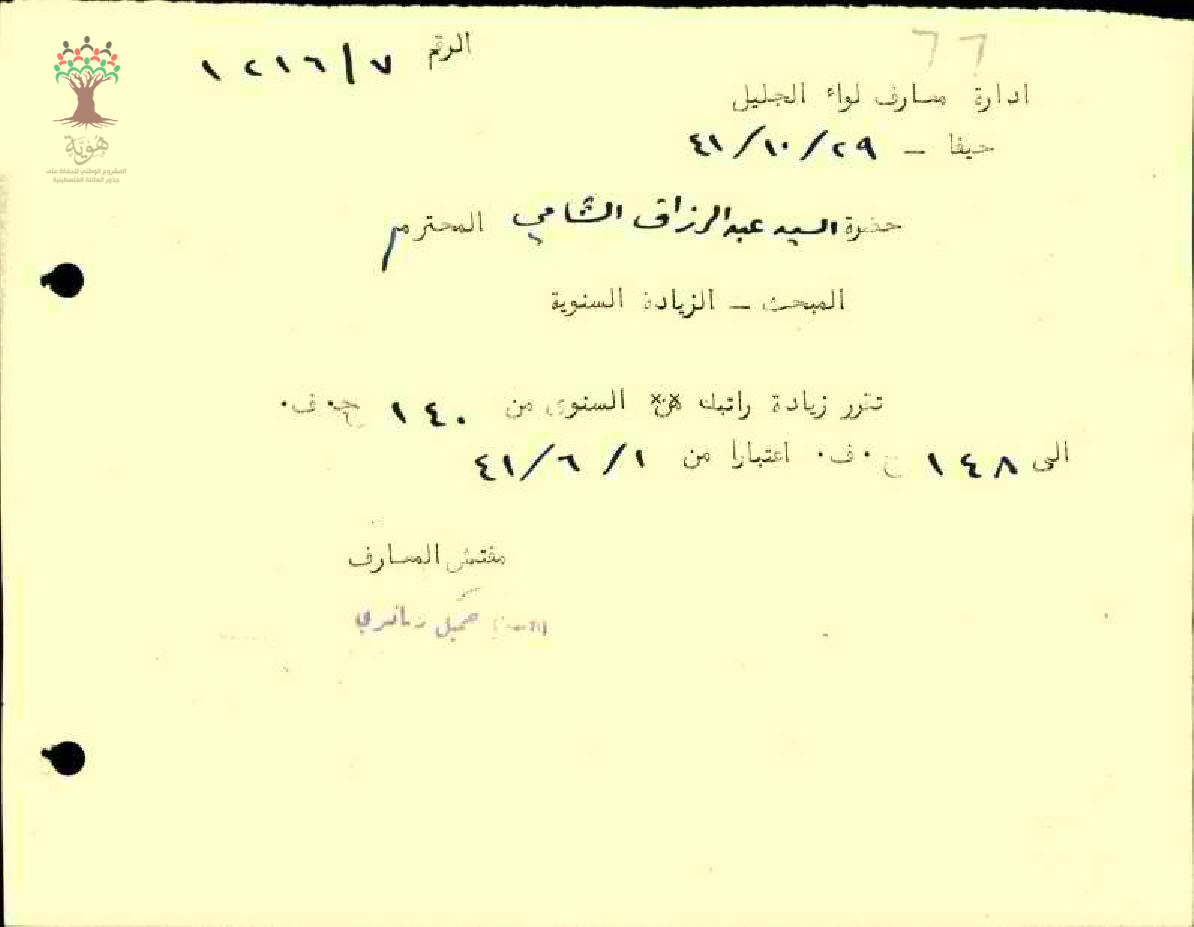 الرقم ١٢١٦/٧
٦٦
ادارة معارف لواء الجليل
حيفا – ٤١/١٠/٢٩
حضرة السيد عبدالرزاق الشامي المحترم
المبحث – الزيادة السنوية
تقرر زيادة راتبك السنوى من ١٤٠ ج٠ف٠
الى ١٤٨ ج٠ف٠ اعتبارا من ٤١/٦/١
مفتش المعارف
جميل
هُوِيَّة
المشروع الوطني للحفاظ على
جذور العائلة الفلسطينية